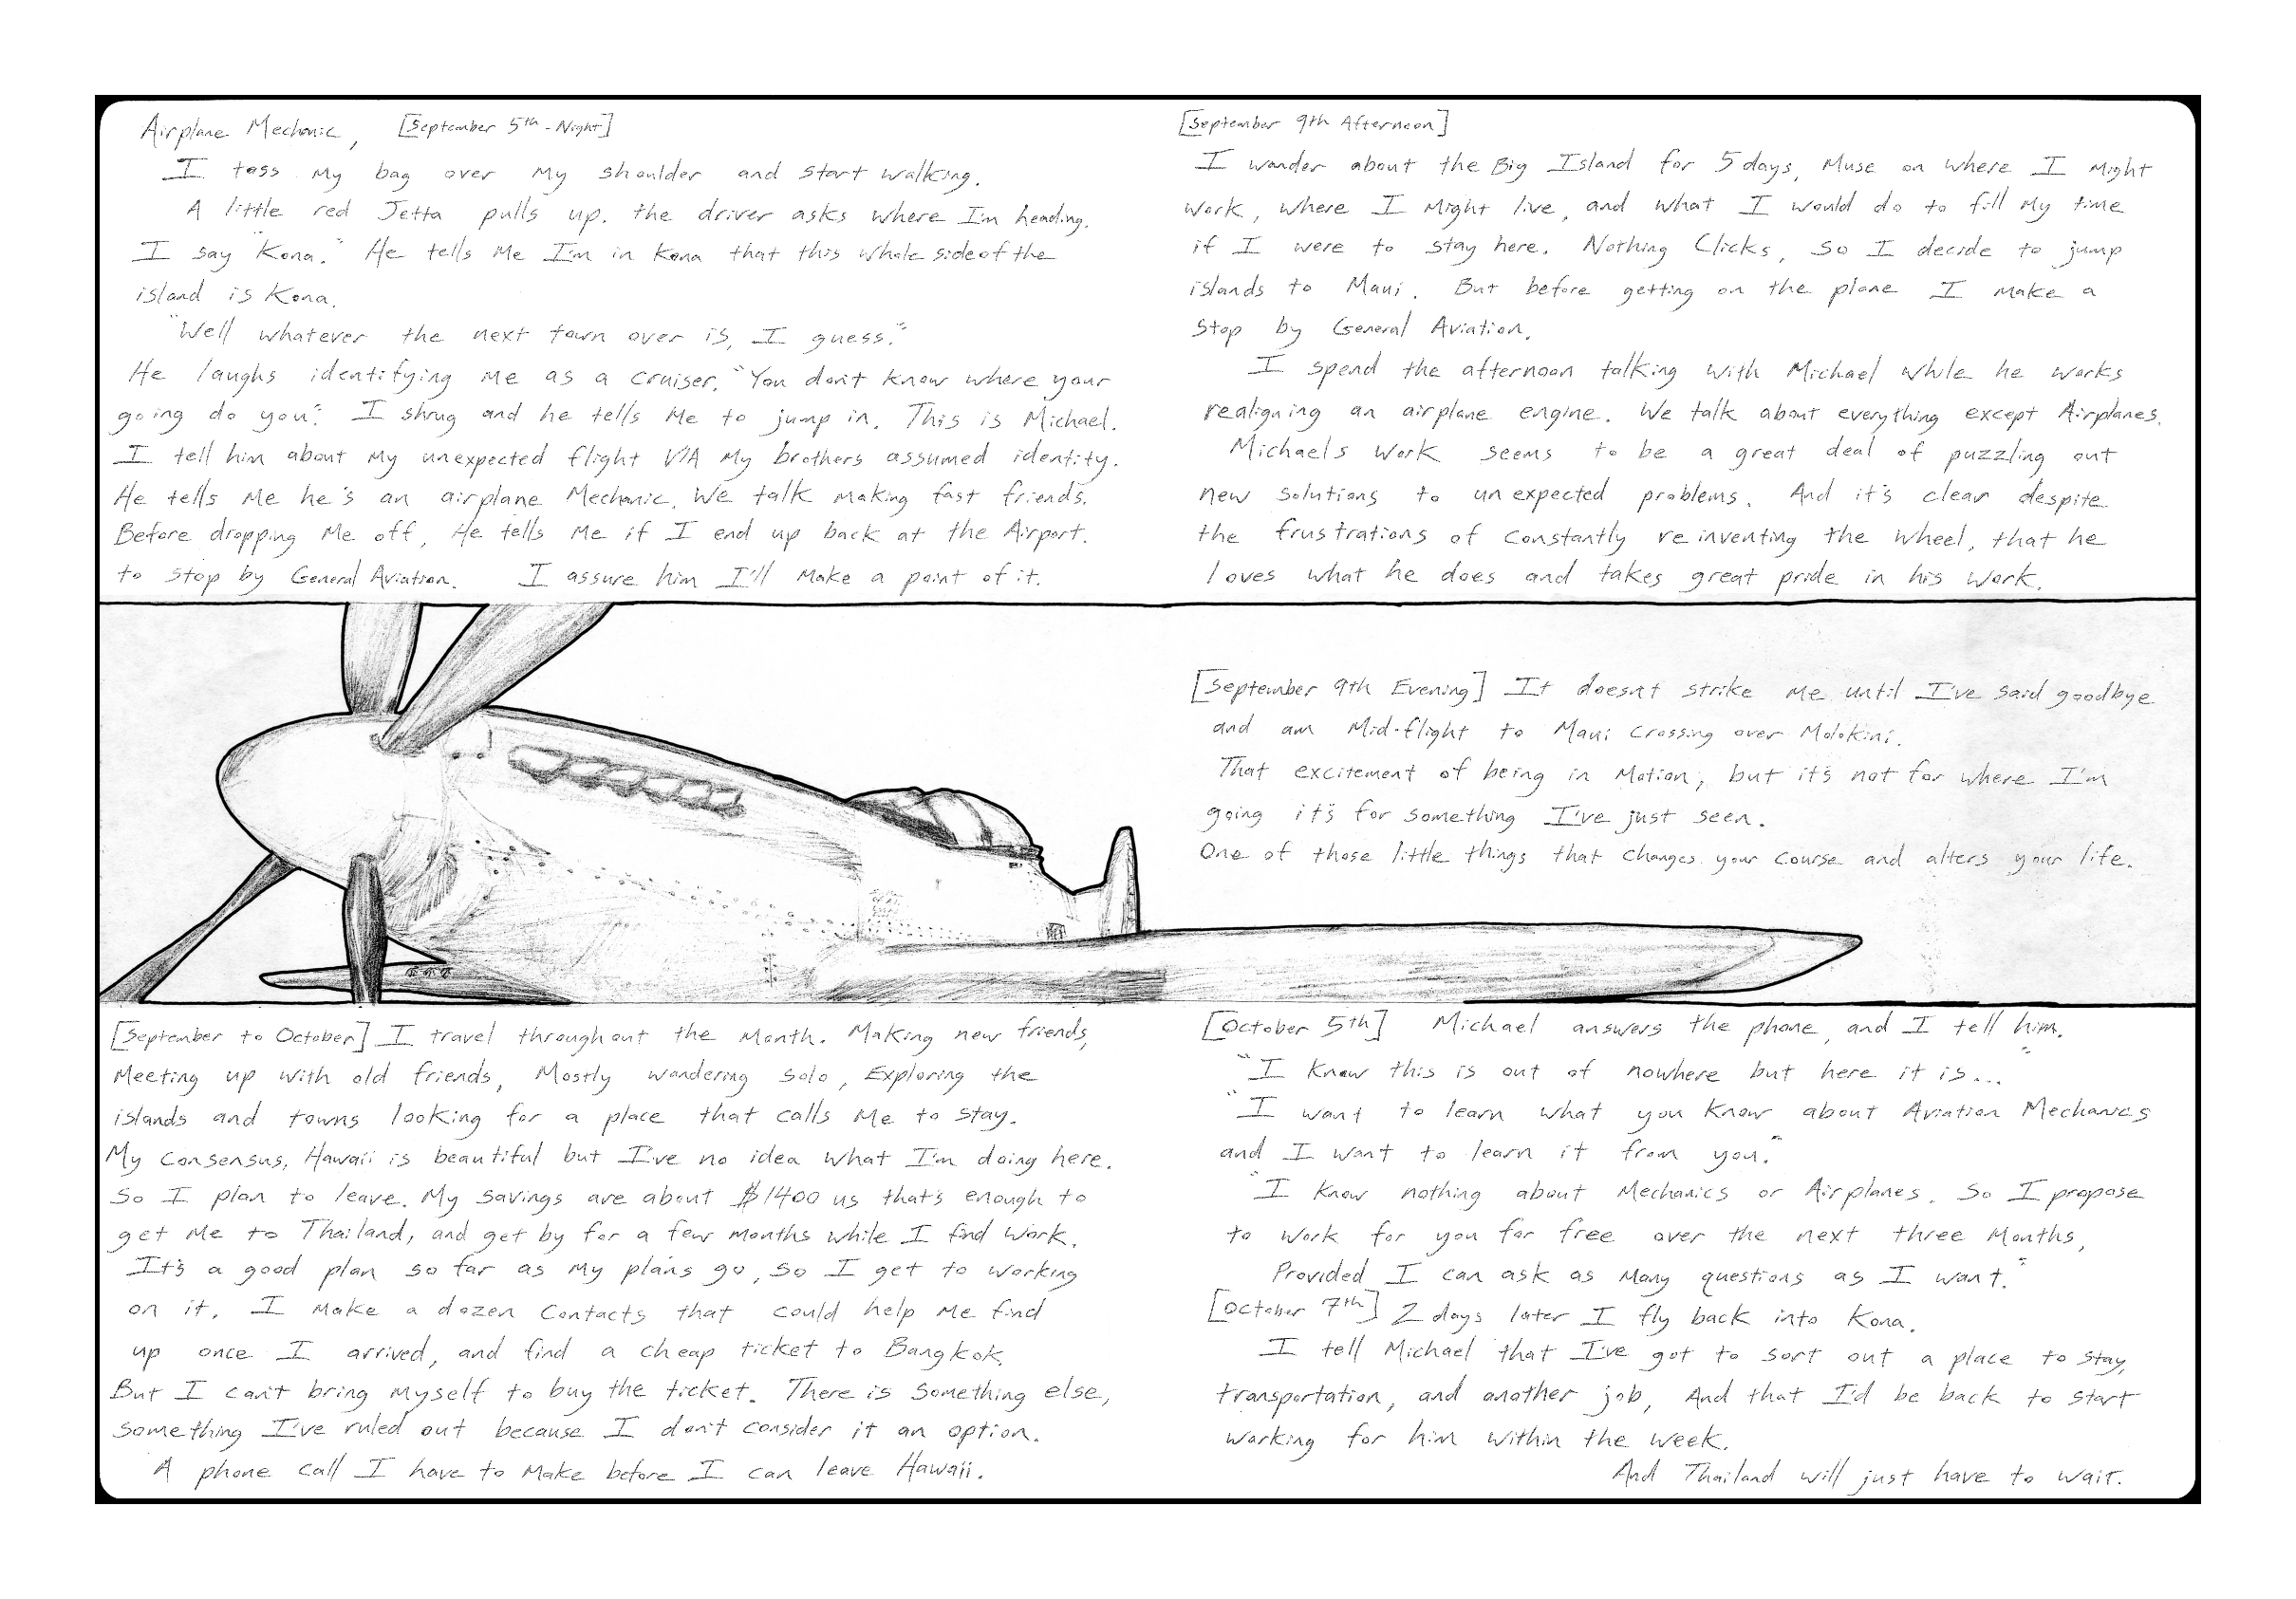 Airplane Mechanic, [September 5th - Night]
I toss my bag over my shoulder and start walking.
A little red Jetta pulls up. the driver asks where I'm heading.
I say "Kona." He tells me I'm in Kona that this whole side of the
island is Kona.
"Well whatever the next town over is, I guess."
He laughs identifying me as a cruiser. "You don't know where your
going do you". I shrug and he tells me to jump in. This is Michael.
I tell him about my unexpected flight VIA my brothers assumed identity.
He tells me he's an airplane Mechanic. We talk making fast friends.
Before dropping me off, He tells me if I end up back at the Airport.
to stop by General Aviation. I assure him I'll make a point of it.
[September 9th Afternoon]
I wander about the Big Island for 5 days, Muse on where I might
work, where I might live, and what I would do to fill my time
if I were to stay here. Nothing Clicks, so I decide to jump
islands to Maui. But before getting on the plane I make a
stop by General Aviation.
I spend the afternoon talking with Michael while he works
realigning an airplane engine. We talk about everything except Airplanes.
Michaels work seems to be a great deal of puzzling out
new solutions to unexpected problems. And it's clear despite
the frustrations of constantly reinventing the wheel, that he
loves what he does and takes great pride in his work.
[September 9th Evening] It doesn't strike me until I've said goodbye
and am mid-flight to Maui crossing over Molokini.
That excitement of being in motion, but it's not for where I'm
going it's for something I've just seen.
One of those little things that changes your course and alters your life.
[September to October] I travel throughout the month. Making new friends,
Meeting up with old friends, Mostly wandering solo, Exploring the
islands and towns looking for a place that calls me to stay.
My consensus, Hawaii is beautiful but I've no idea what I'm doing here.
So I plan to leave. My savings are about $1400 us that's enough to
get me to Thailand, and get by for a few months while I find work.
It's a good plan so far as my plans go, so I get to working
on it. I make a dozen contacts that could help me find
up once I arrived, and find a cheap ticket to Bangkok,
But I can't bring myself to buy the ticket. There is something else,
something I've ruled out because I don't consider it an option.
A phone call I have to make before I can leave Hawaii.
[October 5th] Michael answers the phone, and I tell him.
"I know this is out of nowhere but here it is..."
"I want to learn what you know about Aviation Mechanics
and I want to learn it from you."
"I know nothing about Mechanics or Airplanes. So I propose
to work for you for free over the next three months,
Provided I can ask as many questions as I want."
[October 7th] 2 days later I fly back into Kona.
I tell Michael that I've got to sort out a place to stay,
transportation, and another job, And that I'd be back to start
working for him within the week.
And Thailand will just have to wait.